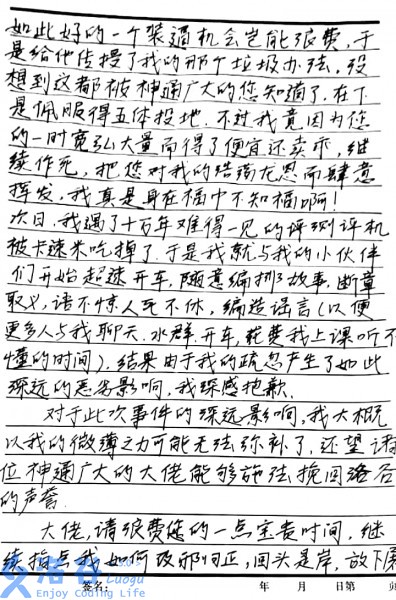 如此好的一个装逼机会岂能浪费,于
是给他传授了我的那个垃圾办法,没
想到这都被神通广大的您知道了,在下
是佩服得五体投地.不过我竟因为您
的一时宽弘大量而得了便宜还卖乖,继
续作死,把您对我的浩荡龙恩而肆意
挥发,我真是身在福中不知福啊!
次日,我遇了十百年难得一见的评测评机
被卡速米吃掉了.于是我就与我的小伙伴
们开始超速开车,随意编排了故事,断章
取义,语不惊人死不休,编造谣言(以便
更多人与我聊天、水群、开车,花费我上课听不
懂的时间).结果由于我的疏忽产生了如此
深远的恶劣影响,我深感抱歉.
对于此次事件的深远影响,我大概
以我的微薄之力可能无法弥补了,还望诸
位神通广大的大佬能够施法挽回洛谷
的声誉.
大佬,请浪费您的一点宝贵时间,继
续指点我如何改邪归正,回头是岸,放下屠
洛谷 Luogu
Enjoy Coding Life
签名: 年 月 日第 页